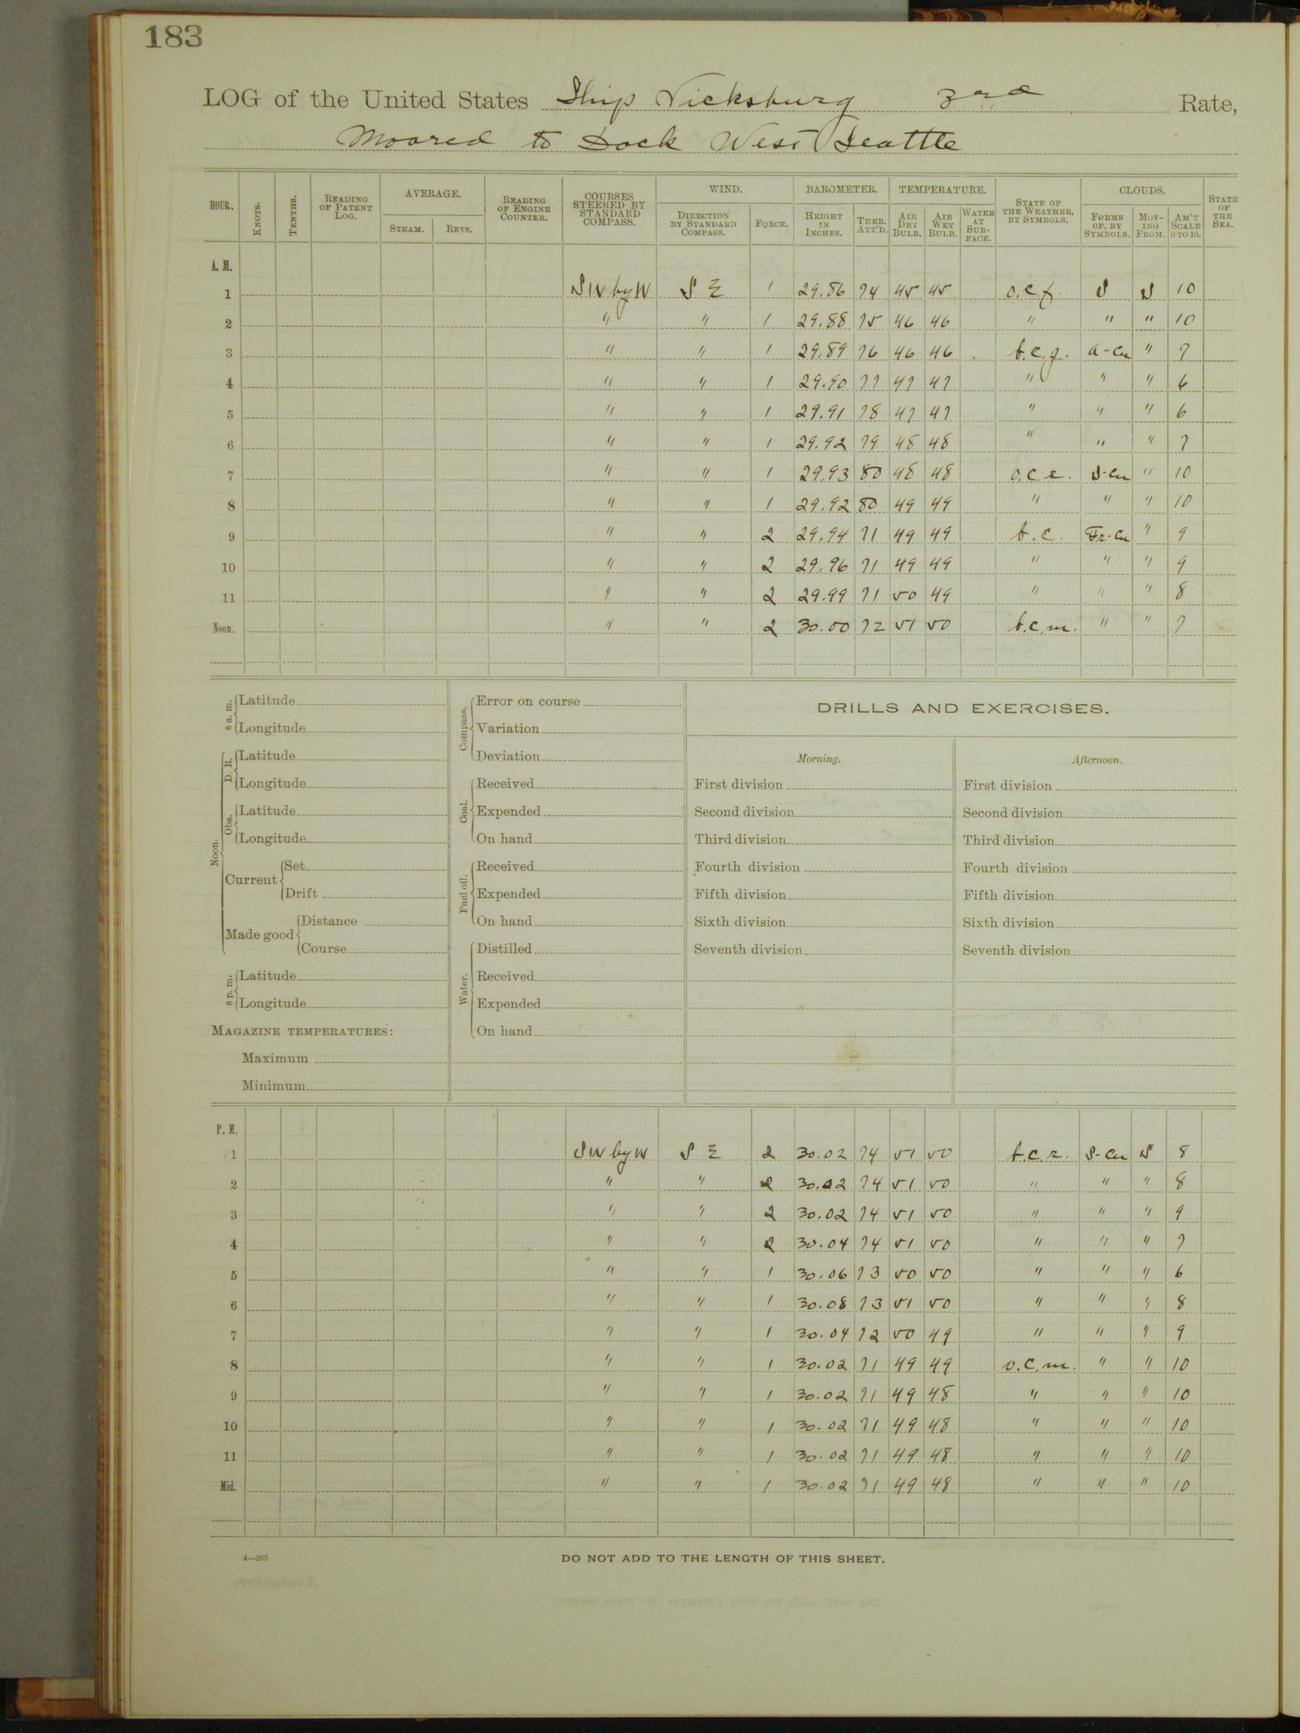 183
LOG of the United States Ship Vicksburg 3rd Rate,
Moored to Dock West Seattle
HOUR. KNOTS. TENTHS. READING OF PATENT LOG. AVERAGE. STEAM. REVS. READING OF ENGINE COUNTER. COURSES STEERED BY STANDARD COMPASS. WIND. DIRECTION BY STANDARD COMPASS. FORCE. BAROMETER. HEIGHT IN INCHES. THER. ATT'D. TEMPERATURE. AIR DRY BULB. AIR WET BULB. WATER AT SURFACE. STATE OF THE WEATHER, BY SYMBOLS. CLOUDS. FORMS OF, BY SYMBOLS. MOVING FROM. AM'T SCALE 0 TO 10. STATE OF THE SEA.
A. M.
1 SW by W S E 1 29.86 74 45 45 o.c.f. S S 10
2 " " 1 29.88 75 46 46 " " " 10
3 " " 1 29.89 76 46 46 b.c.g. a-cu " 7
4 " " 1 29.90 77 47 47 " " " 6
5 " " 1 29.91 78 47 47 " " " 6
6 " " 1 29.92 79 48 48 " " " 7
7 " " 1 29.93 80 48 48 o.c.e. S-cu " 10
8 " " 1 29.92 80 49 49 " " " 10
9 " " 2 29.94 71 49 49 b.c. Fr-cu " 9
10 " " 2 29.96 71 49 49 " " " 9
11 " " 2 29.99 71 50 49 " " " 8
Noon. " " 2 30.00 72 51 50 b.c.m. " " 7
8 a. m. Latitude
Longitude
Noon. D. R. Latitude
Longitude
Obs. Latitude
Longitude
Current Set
Drift
Made good Distance
Course
8 p. m. Latitude
Longitude
MAGAZINE TEMPERATURES:
Maximum
Minimum
Compass. Error on course
Variation
Deviation
Coal. Received
Expended
On hand
Fuel oil. Received
Expended
On hand
Water. Distilled
Received
Expended
On hand
DRILLS AND EXERCISES.
Morning. Afternoon.
First division First division
Second division Second division
Third division Third division
Fourth division Fourth division
Fifth division Fifth division
Sixth division Sixth division
Seventh division Seventh division
P. M.
1 SW by W S E 2 30.02 74 51 50 b.c.r. S-cu S 8
2 " " 2 30.02 74 51 50 " " " 8
3 " " 2 30.02 74 51 50 " " " 9
4 " " 2 30.04 74 51 50 " " " 7
5 " " 1 30.06 73 50 50 " " " 6
6 " " 1 30.08 73 51 50 " " " 8
7 " " 1 30.04 72 50 49 " " " 9
8 " " 1 30.02 71 49 49 o.c.m. " " 10
9 " " 1 30.02 71 49 48 " " " 10
10 " " 1 30.02 71 49 48 " " " 10
11 " " 1 30.02 71 49 48 " " " 10
Mid. " " 1 30.02 71 49 48 " " " 10
4—265 DO NOT ADD TO THE LENGTH OF THIS SHEET.